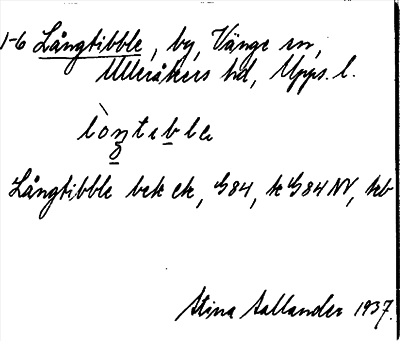 1-6 Långtibble, by, Vänge sn,
Ulleråkers hd, Upps. l.
Långtibble bek ek, G84, k G84 NV, kb
Stina Sallander 1937.